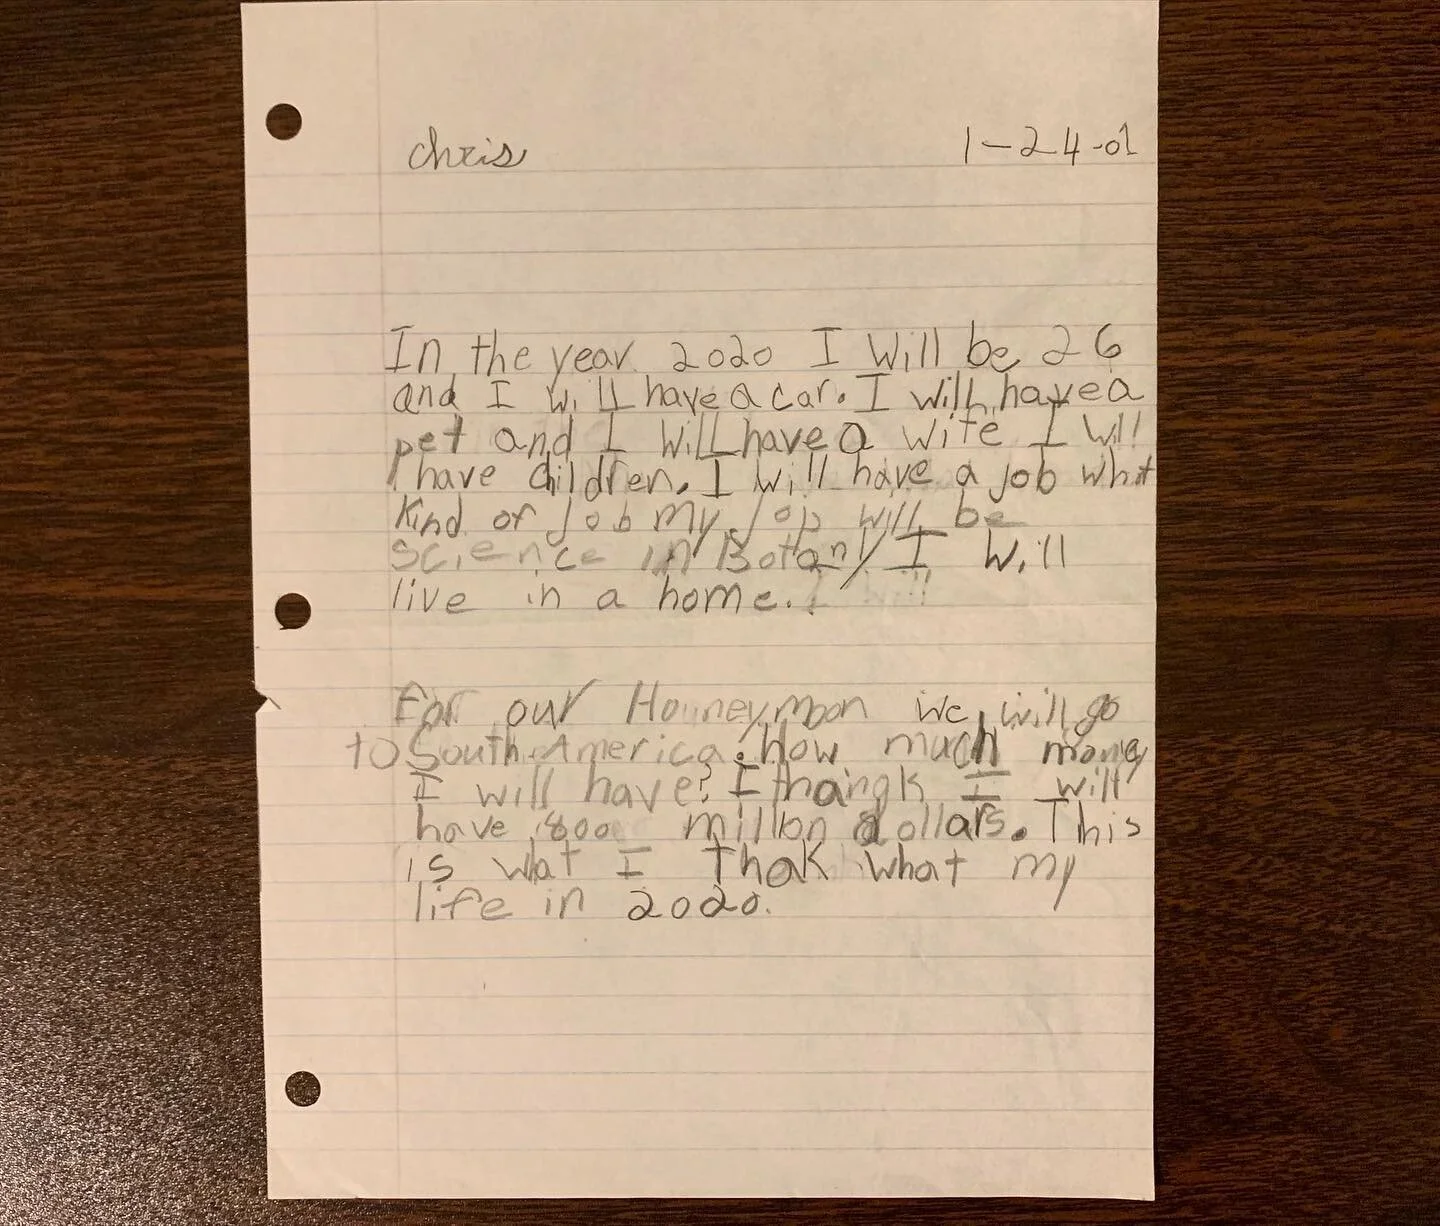 chris 1-24-01
In the year 2020 I will be 26
and I will have a car. I will have a
pet and I will have a wife I will
have children. I will have a job what
kind of job my jop will be
science in Botany I will
live in a home. I will
For our Houneymoon we will go
to South America. How much money
I will have? I thaingk I will
have 800 millon dollars. This
is what I Thak what my
life in 2020.